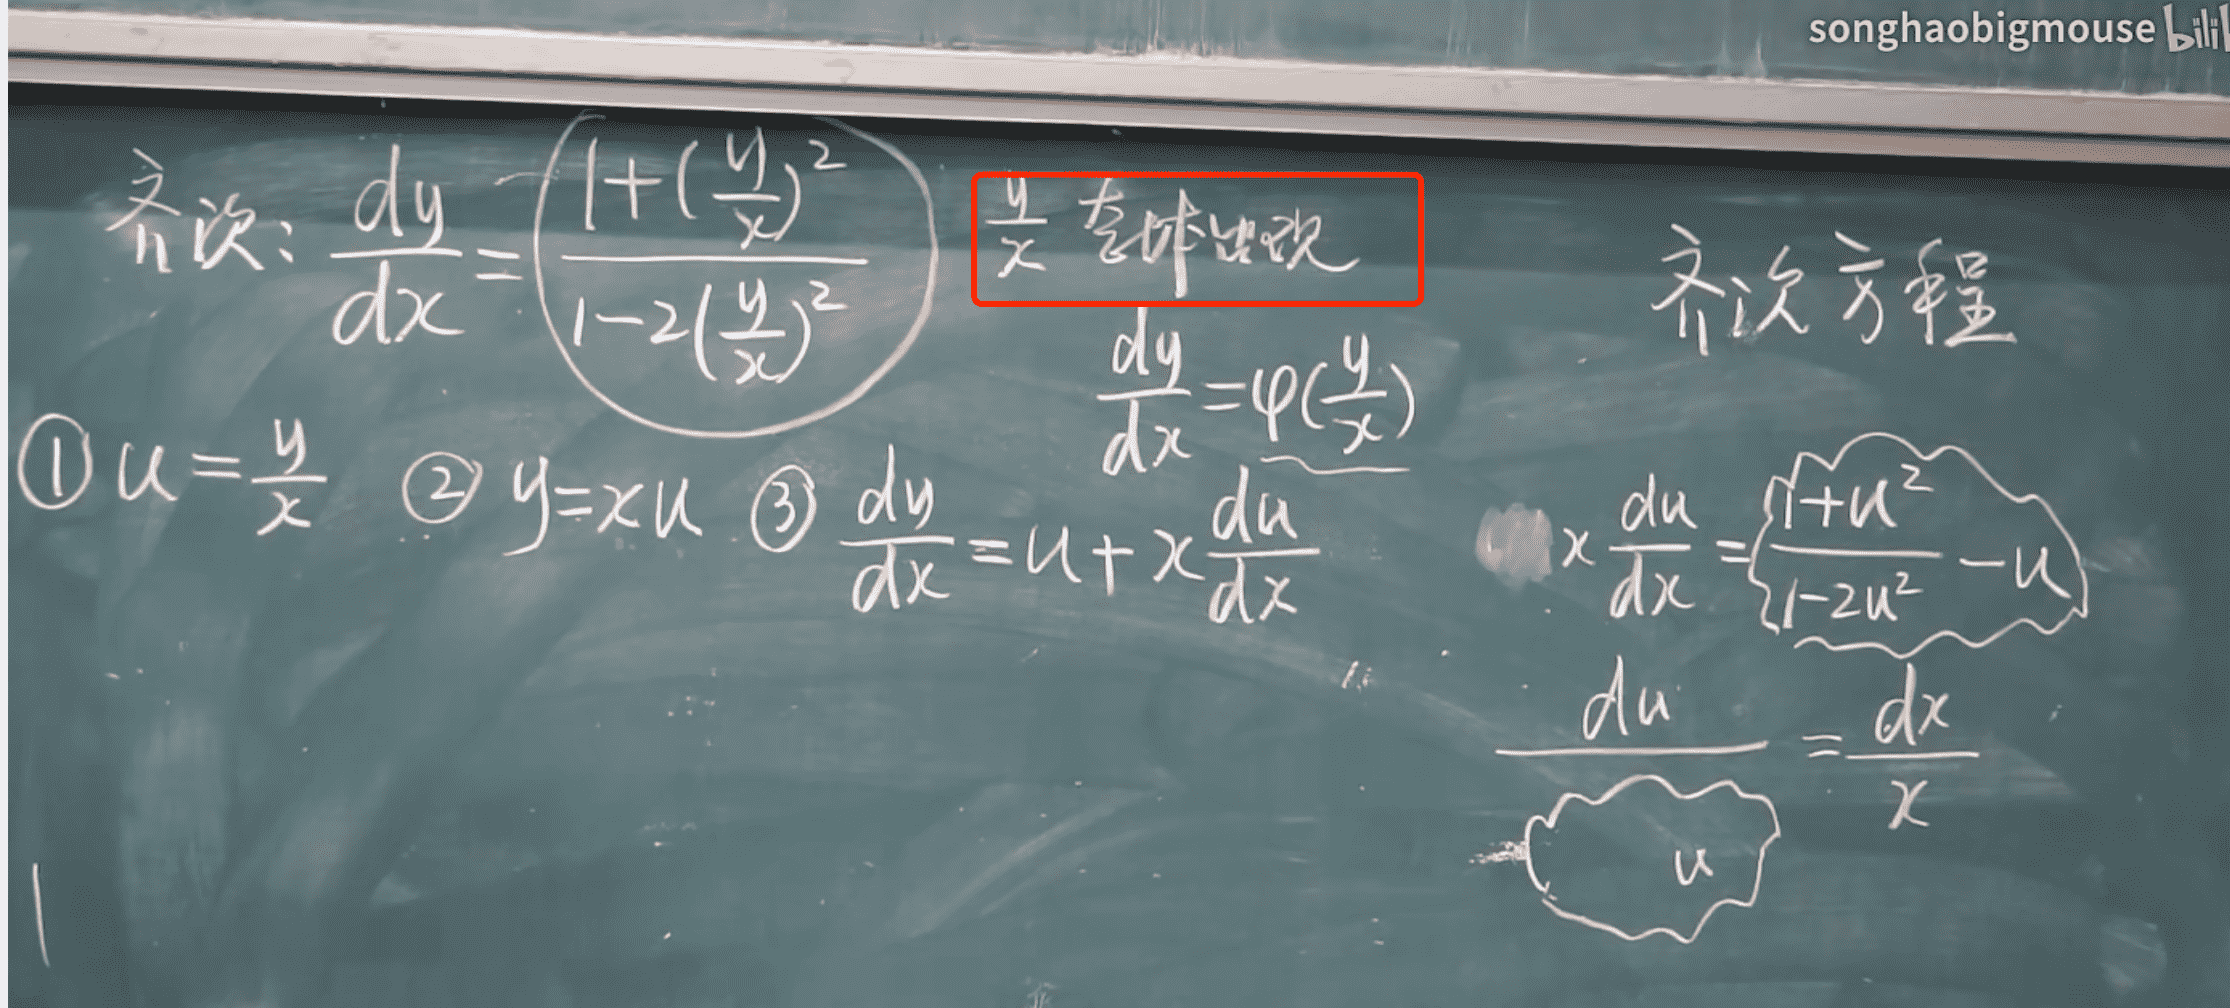 songhaobigmouse bili
齐次: dy/dx = (1+(y/x)²)/(1-2(y/x)²)
y/x 整体出现
齐次方程
dy/dx = φ(y/x)
① u = y/x ② y = xu ③ dy/dx = u + x du/dx
x du/dx = (1+u²)/(1-2u²) - u
du/u = dx/x